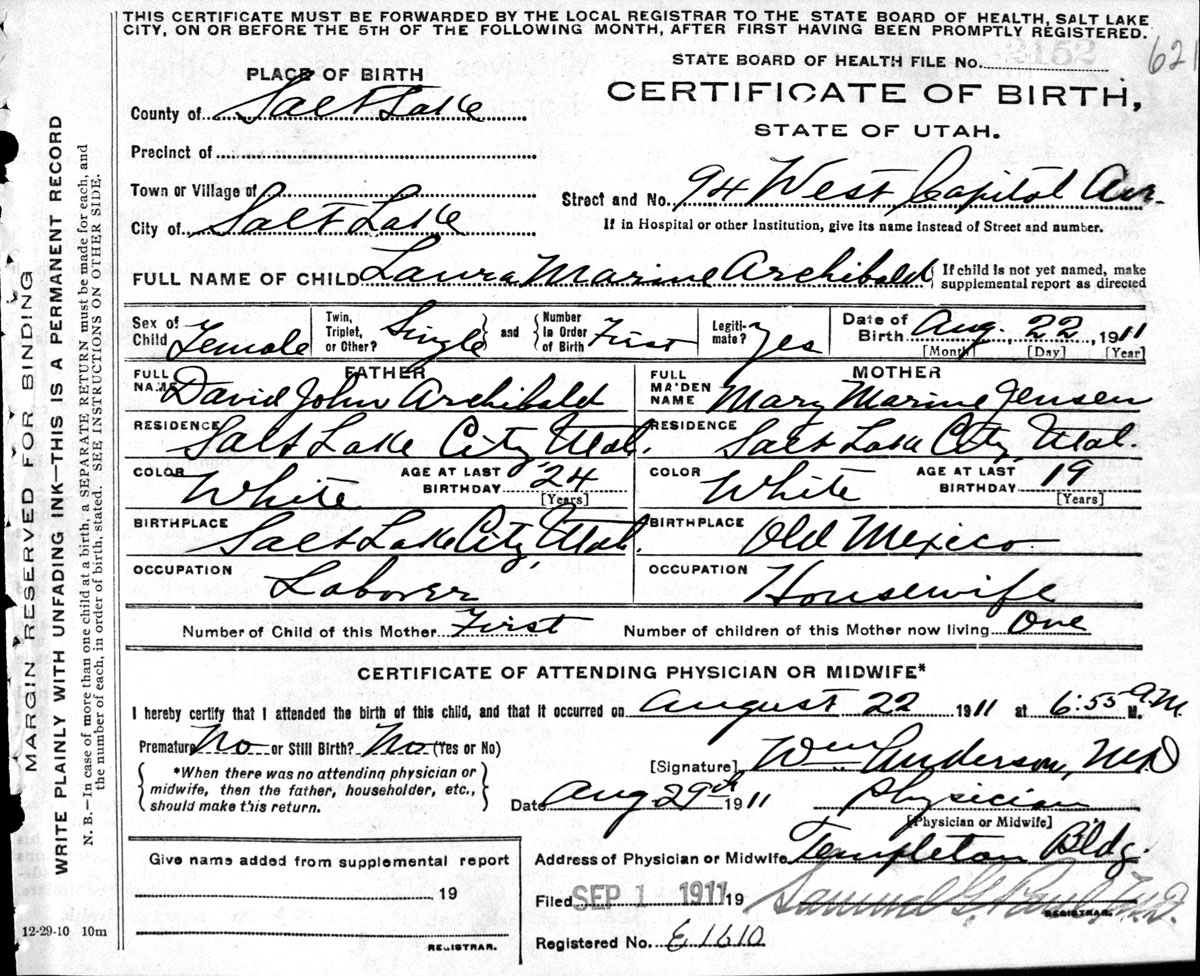 THIS CERTIFICATE MUST BE FORWARDED BY THE LOCAL REGISTRAR TO THE STATE BOARD OF HEALTH, SALT LAKE
CITY, ON OR BEFORE THE 5TH OF THE FOLLOWING MONTH, AFTER FIRST HAVING BEEN PROMPTLY REGISTERED.
STATE BOARD OF HEALTH FILE No. 2152
621
PLACE OF BIRTH
CERTIFICATE OF BIRTH,
County of Salt Lake
STATE OF UTAH.
Precinct of
Town or Village of
Street and No. 94 West Capitol Av.
City of Salt Lake
If in Hospital or other Institution, give its name Instead of Street and number.
FULL NAME OF CHILD Laura Marine Archibald
If child is not yet named, make
supplemental report as directed
Sex of Child Female
Twin, Triplet, or Other? Single
and
Number In Order of Birth First
Legiti-mate? Yes
Date of Birth Aug. 22, 1911
[Month] [Day] [Year]
FATHER
FULL NAME David John Archibald
RESIDENCE Salt Lake City, Utah.
COLOR White AGE AT LAST BIRTHDAY 24
[Years]
BIRTHPLACE Salt Lake City, Utah.
OCCUPATION Laborer
MOTHER
FULL MAIDEN NAME Mary Marine Jensen
RESIDENCE Salt Lake City, Utah.
COLOR White AGE AT LAST BIRTHDAY 19
[Years]
BIRTHPLACE Old Mexico
OCCUPATION Housewife
Number of Child of this Mother First Number of children of this Mother now living One
CERTIFICATE OF ATTENDING PHYSICIAN OR MIDWIFE*
I hereby certify that I attended the birth of this child, and that it occurred on August 22 1911 at 6:55 A.M. M.
Premature No or Still Birth? No (Yes or No)
*When there was no attending physician or
midwife, then the father, householder, etc.,
should make this return.
[Signature] Wm Anderson, MD
Date Aug 29th 1911 Physician
[Physician or Midwife]
Give name added from supplemental report
19
REGISTRAR.
Address of Physician or Midwife Templeton Bldg.
Filed SEP 1 1911 19 Samuel G. Paul, M.D.
REGISTRAR.
Registered No. E1610
12-29-10 10m
MARGIN RESERVED FOR BINDING
WRITE PLAINLY WITH UNFADING INK—THIS IS A PERMANENT RECORD
N. B.—In case of more than one child at a birth, a SEPARATE RETURN must be made for each, and
the number of each, in order of birth, stated. SEE INSTRUCTIONS ON OTHER SIDE.